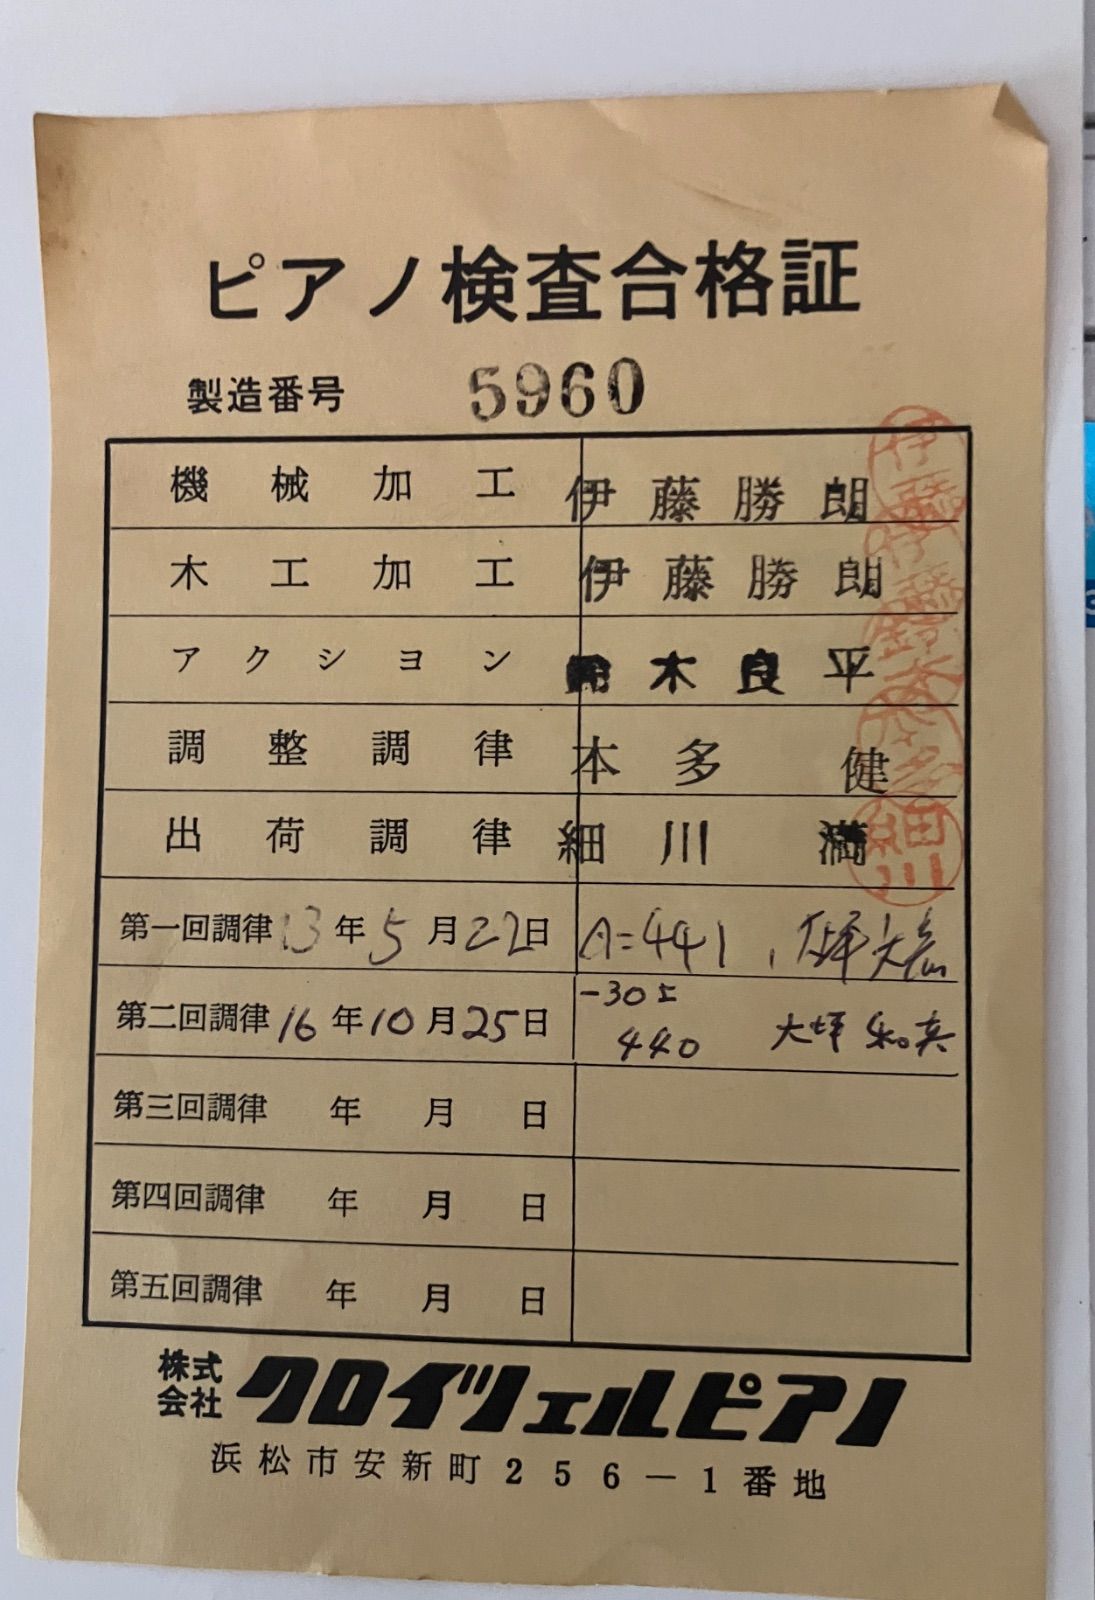 ピアノ検査合格証
製造番号 5960
機械加工 伊藤勝朗
木工加工 伊藤勝朗
アクション 鈴木良平
調整調律 本多 健
出荷調律 細川 満
第一回調律 13年5月22日 A=441,
第二回調律 16年10月25日 -30 440 大坪
第三回調律 年 月 日
第四回調律 年 月 日
第五回調律 年 月 日
株式会社 クロイツェルピアノ
浜松市安新町256-1番地